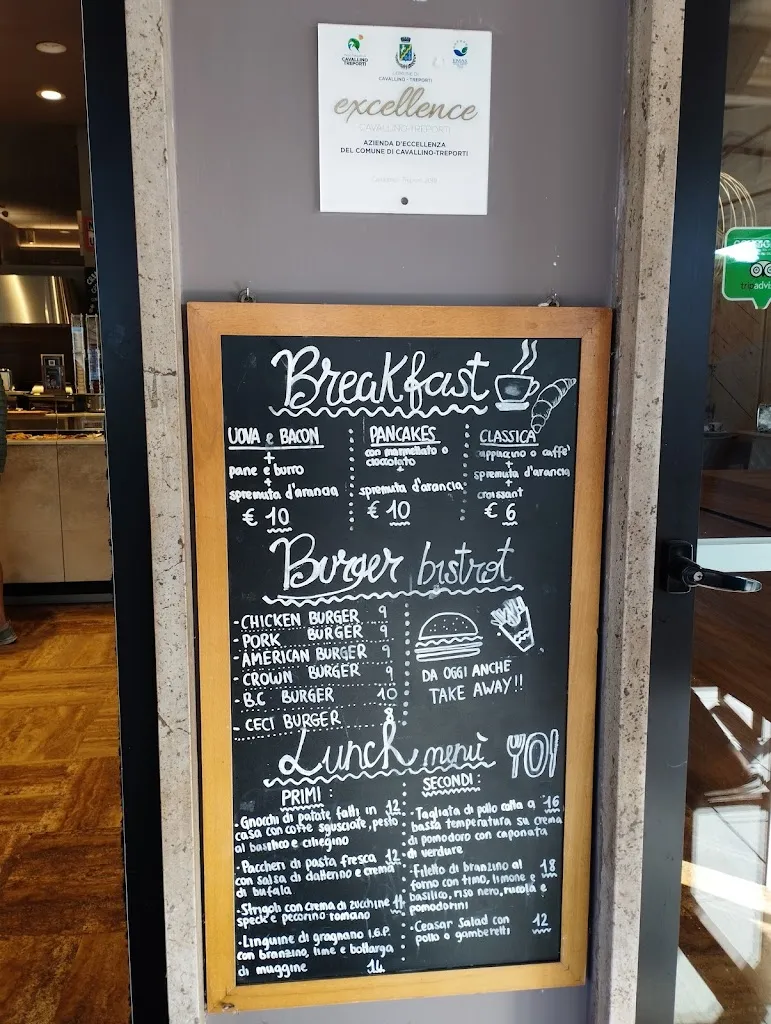 CAVALLINO
TREPORTI
COMUNE DI
CAVALLINO - TREPORTI
EMAS
excellence
CAVALLINO-TREPORTI
AZIENDA D'ECCELLENZA
DEL COMUNE DI CAVALLINO-TREPORTI
tripadvis
Breakfast
UOVA e BACON
+
pane e burro
+
spremuta d'arancia
€ 10
PANCAKES
con marmellata o
cioccolato
+
spremuta d'arancia
€ 10
CLASSICA
cappuccino o caffe'
+
spremuta d'arancia
+
croissant
€ 6
Burger bistrot
- CHICKEN BURGER 9
- PORK BURGER 9
- AMERICAN BURGER 9
- CROWN BURGER 9
- B.C BURGER 10
- CECI BURGER 8
DA OGGI ANCHE
TAKE AWAY!!
Lunch menù
PRIMI:
- Gnocchi di patate fatti in 12
casa con cozze sgusciate, pesto
al basilico e ciliegino
- Paccheri di pasta fresca 12
con salsa di datterino e crema
di bufala
- Strigoli con crema di zucchine 11
speck e pecorino romano
- Linguine di gragnano I.G.P.
con branzino, lime e bottarga
di muggine 14
SECONDI:
- Tagliata di pollo cotta a 16
bassa temperatura su crema
di pomodoro con caponata
di verdure
- Filetto di branzino al 18
forno con timo, limone e
basilico, riso nero, rucola e
pomodorini
- Ceasar Salad con 12
pollo o gamberetti